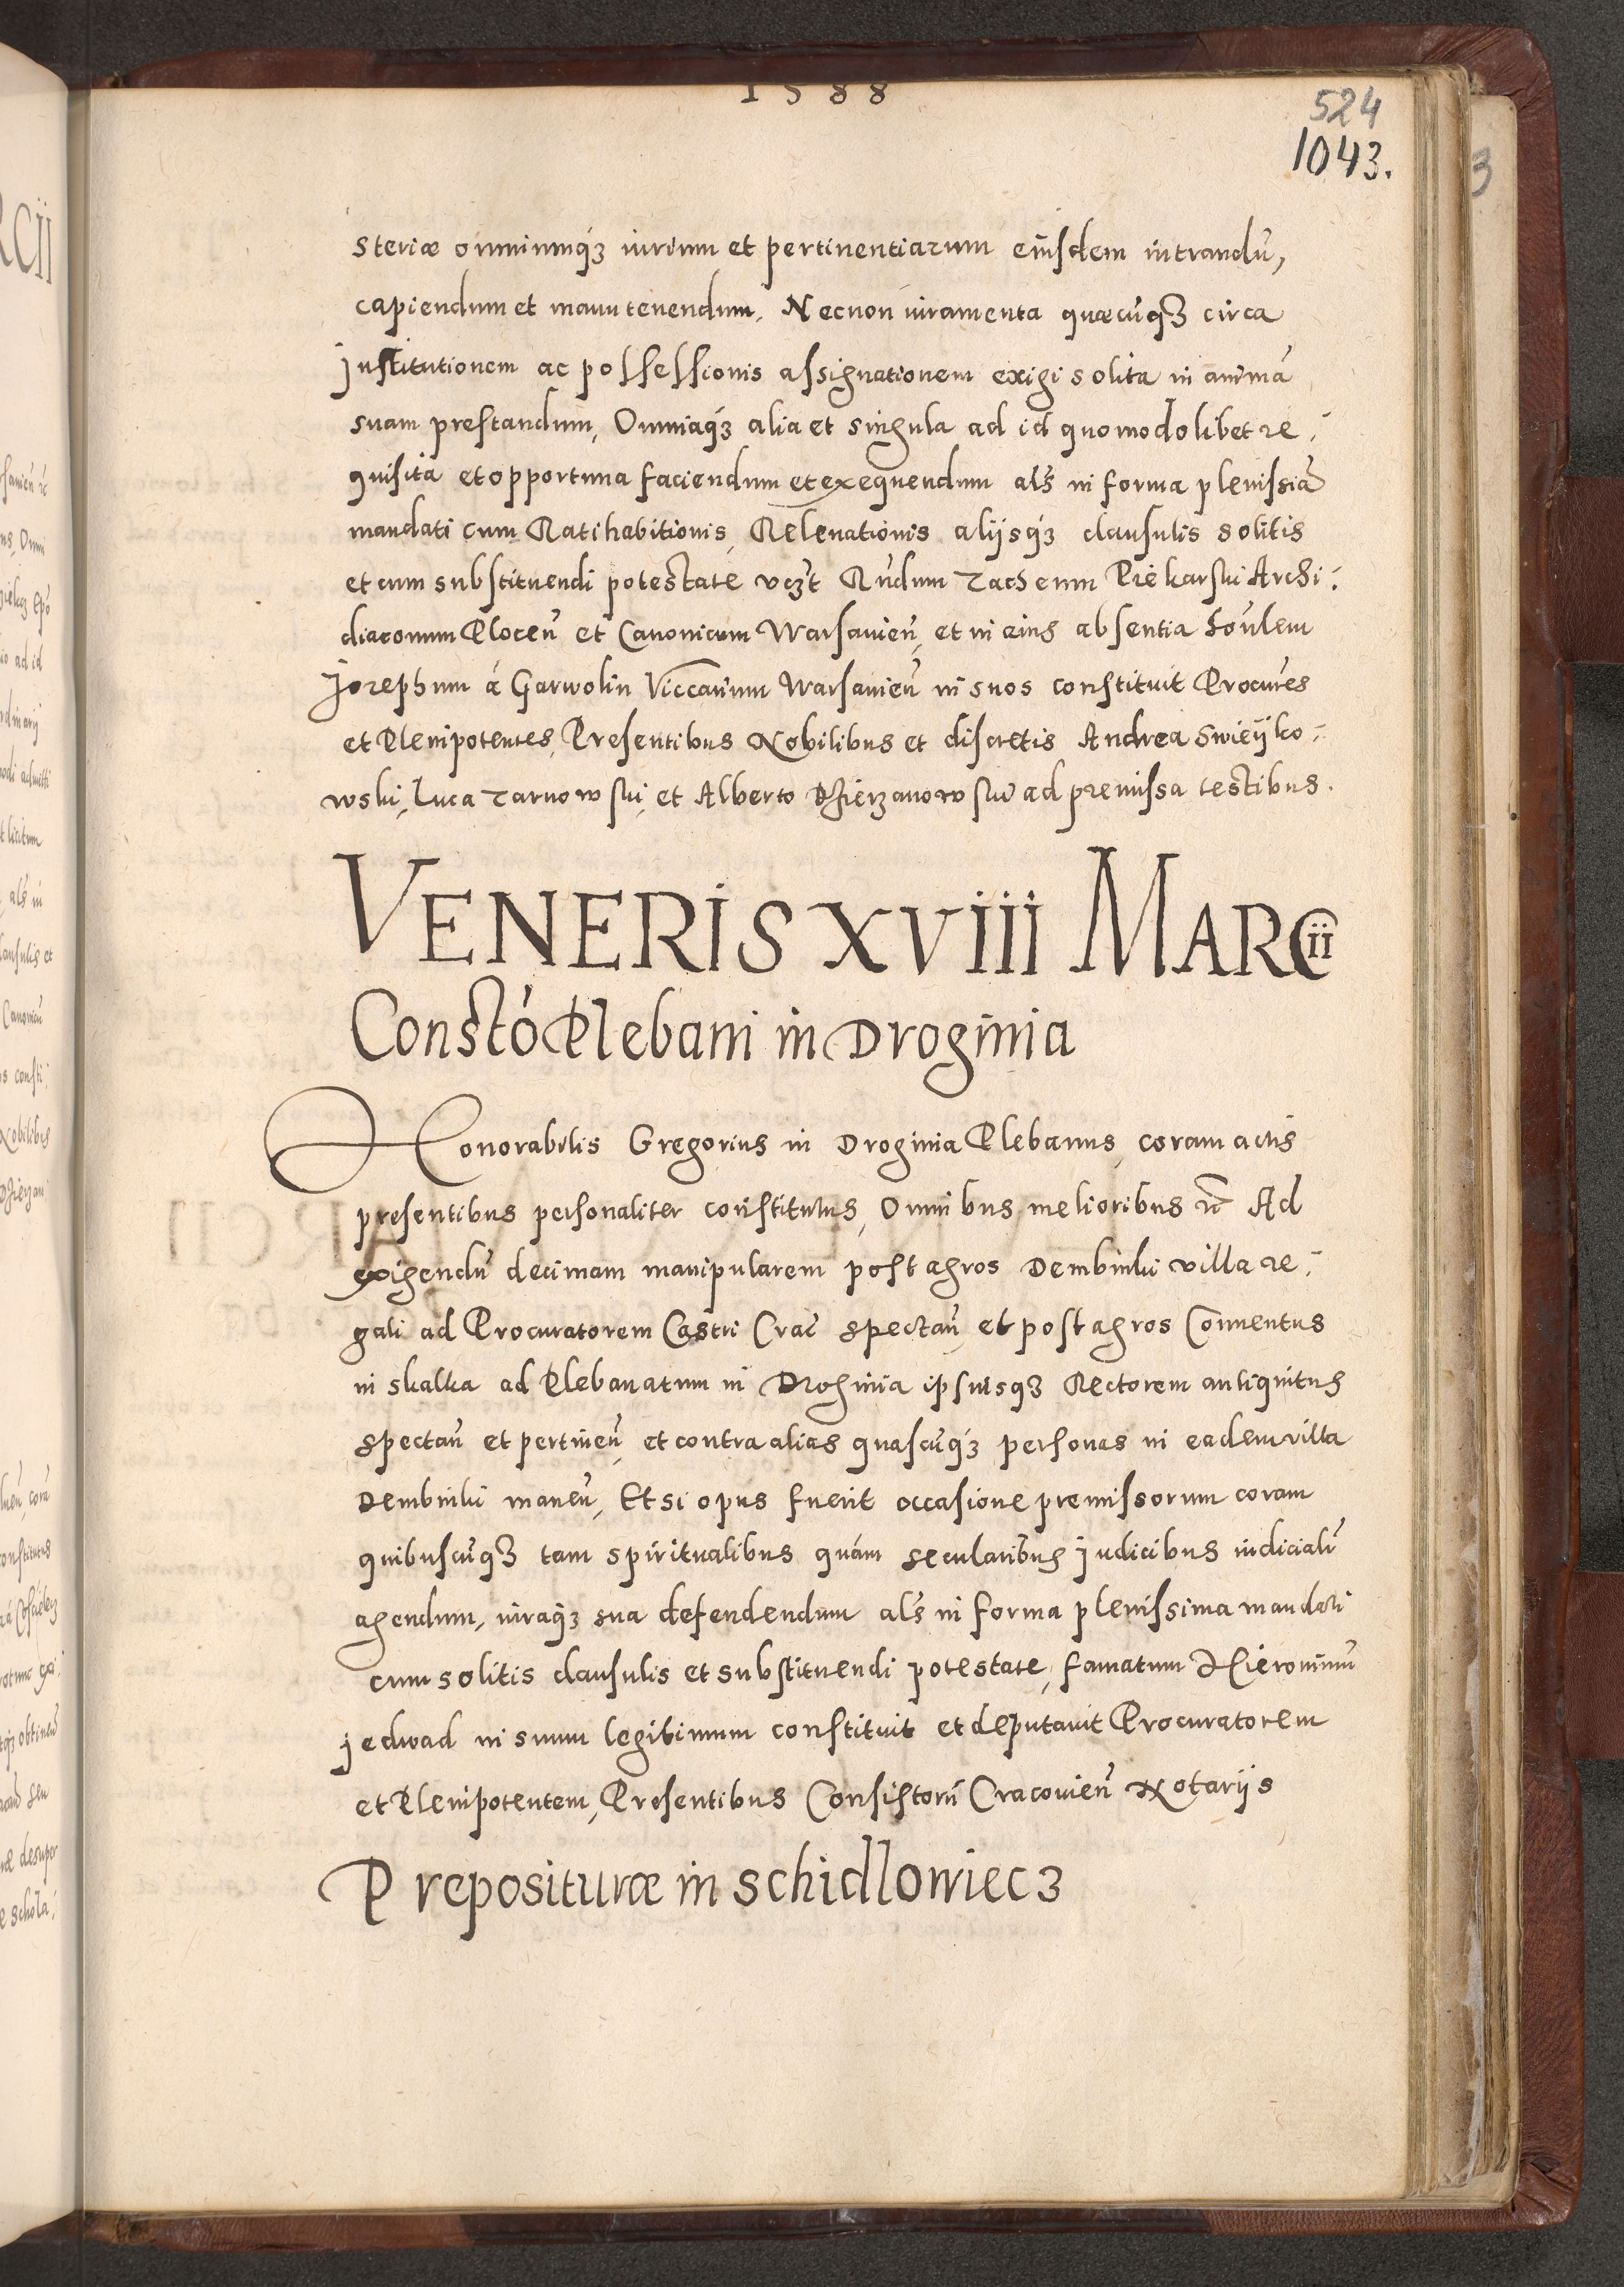 1588
524
1043.
steriæ omniumq́ꝫ iurium et pertinentiarum eiusdem intrandū,
capiendum et manutenendum, Necnon iuramenta quæcūqꝫ circa
Institutionem ac possessionis assignationem exigi solita in animā
suam prestandum, Omniaq́ꝫ alia et singula ad id quomodolibet re-
quisita et opportuna faciendum et exequendum als̃ in forma plenissiã
mandati cum Ratihabitionis, Releuationis alijsq́ꝫ clausulis solitis
et cum substituendi potestate vcꝫt Rñdum Zacheum Piekarski Archi-
diaconum Plocen̄ et Canonicum Warsauien̄, et in eius absentia
Iozephum á Garwolin Viccarium Warsauien̄ in suos constituit Procures
et Plenipotentes, Presentibus Nobilibus et discretis Andrea Swieijko-
wski, Luca Tarnowski, et Alberto Dzierzanowski ad premissa testibus.
VENERIS XVIII MARCII
Constō Plebani in Droginia
Honorabilis Gregorius in Droginia Plebanus, coram actis
presentibus personaliter constitutus, Omnibus melioribus ꝛc̃ Ad
exigendū decimam manipularem post agros Dembinki villa re-
gali ad Procuratorem Castri Crac̃ spectan̄, et post agros Conuentus
in skalka ad Plebanatum in Droginia ipsiusqꝫ Rectorem antiquitus
spectan̄ et pertinen̄, et contra alias quascūq́ꝫ personas in eadem villa
Dembinki manen̄, Et si opus fuerit occasione premissorum coram
quibuscūqꝫ tam spiritualibus quám secularibus Iudicibus iudicialr̃
agendum, iuraq́ꝫ sua defendendum als̃ in forma plenissima mandati
cum solitis clausulis et substituendi potestate, famatum Hieronimū
Jedwad in suum legitimum constituit et deputauit Procuratorem
et Plenipotentem, Presentibus Consistorii Cracouien̄ Notarijs
Prepositurae in schidlowiecz